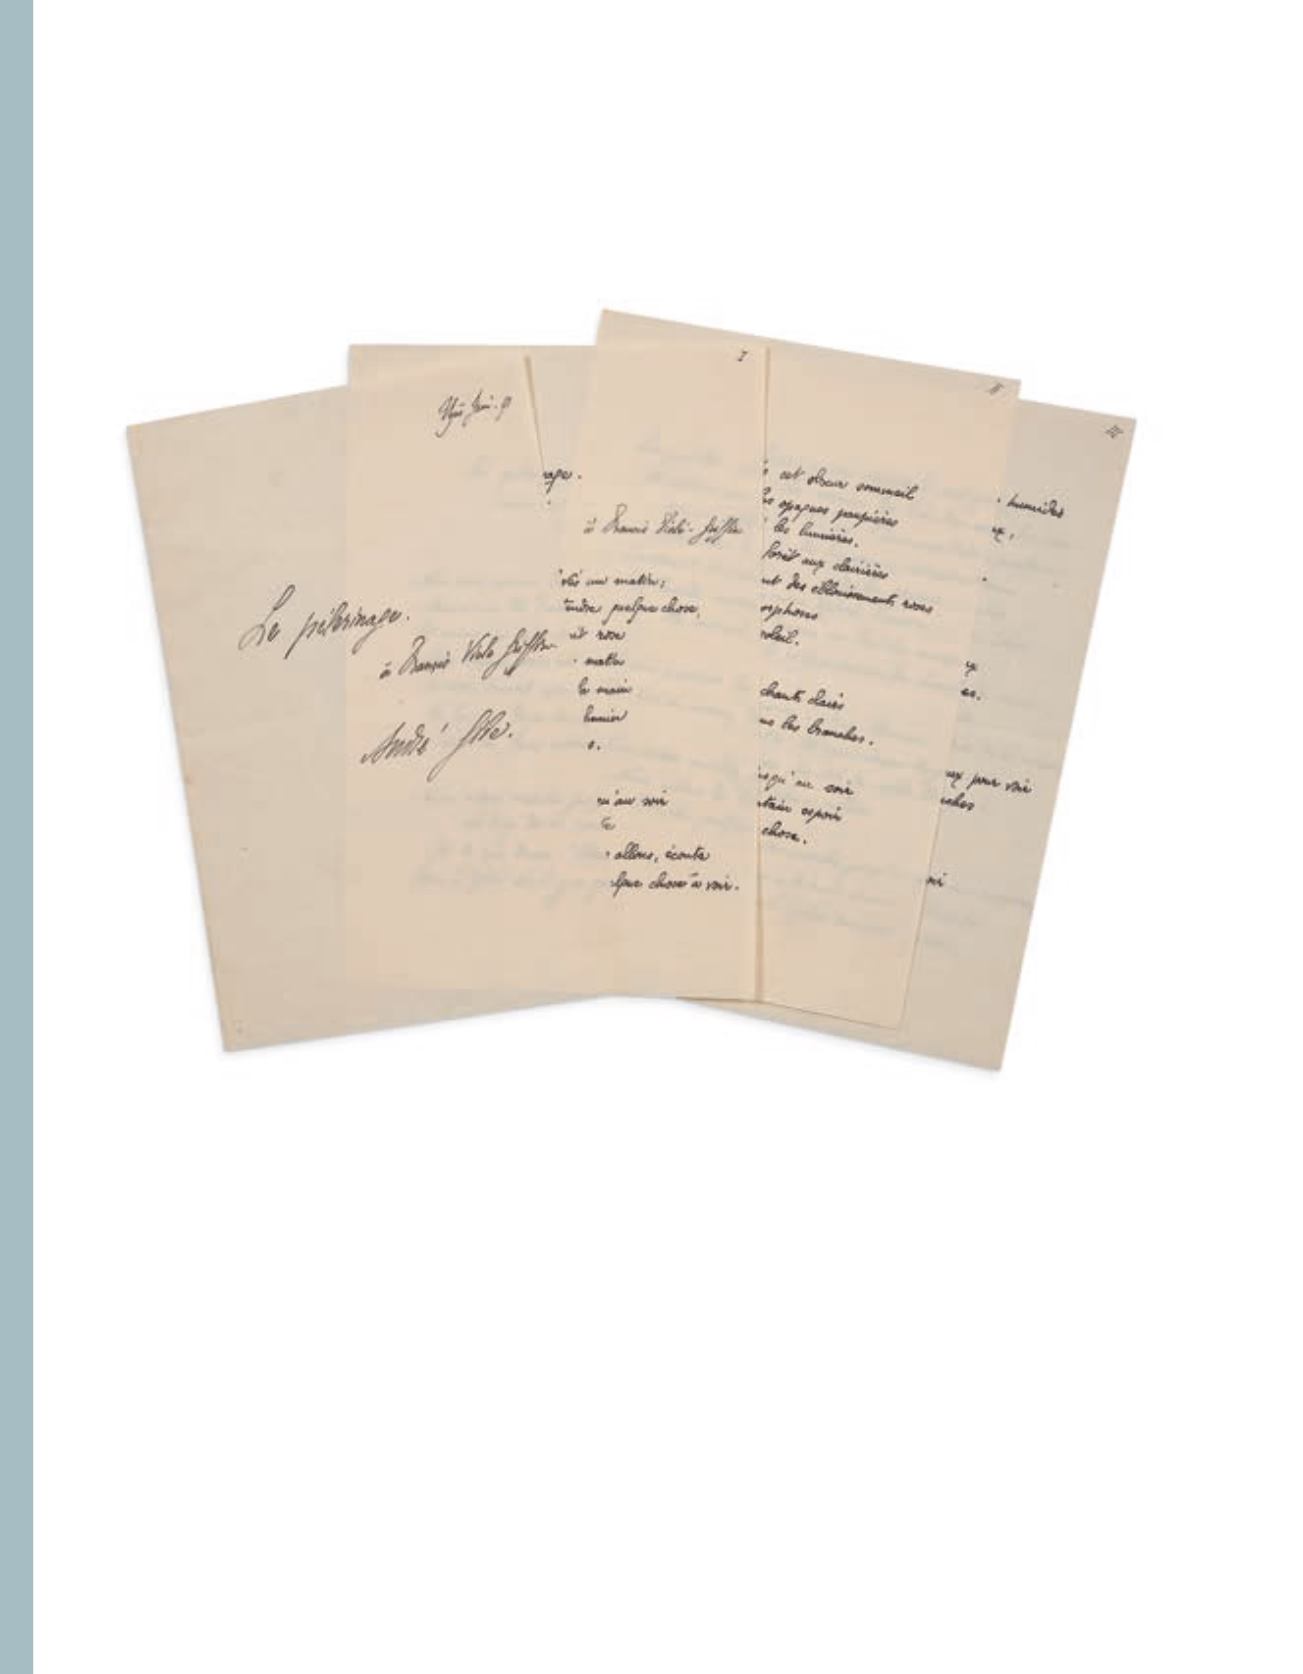 Le pèlerinage.
à Francis Viélé Griffin
André Gide.
I
age.
à Francis Viélé-Griffin
un matin;
quelque chose,
rose
matin
la main
qu'au soir
allons, écoute
chose à voir.
II
cet obscur sommeil
opaques paupières
les lumières.
forêt aux clairières
des éblouissements roses
soleil.
chants clairs
les branches.
jusqu'au soir
espoir
chose.
III
humides
eux pour voir